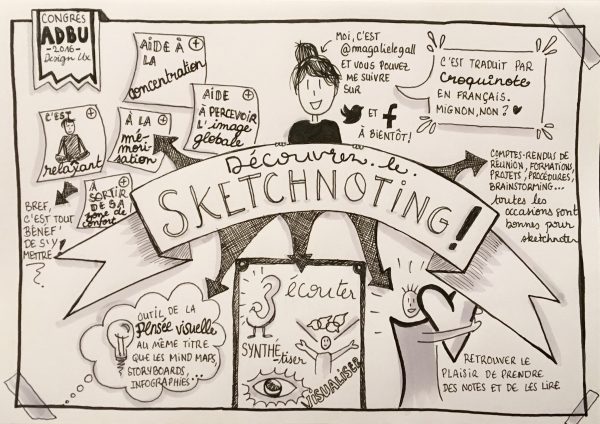 CONGRÈS
ADBU
-2016-
Design Ux
AIDE À
LA
concentration
AIDE
À PERCEVOIR
L'image
globale
C'EST
relaxant
À LA
mé-
mori-
sation
À
SORTIR
DE SA
zone de
confort
BREF,
C'EST TOUT
BÉNEF'
DE S'Y
METTRE
MOI, C'EST
@magalielegall
ET VOUS POUVEZ
ME SUIVRE
SUR
ET f
À BIENTÔT!
C'EST TRADUIT PAR
Croquinote
EN FRANÇAIS.
MIGNON, NON?
Découvrez le
SKETCHNOTING!
COMPTES-RENDUS DE
RÉUNION, FORMATION,
PROJETS, PROCÉDURES,
BRAINSTORMING...
toutes les
occasions sont
bonnes pour
sketchnoter
OUTIL DE LA
Pensée visuelle
AU MÊME TITRE
QUE LES MIND MAPS
STORYBOARDS,
INFOGRAPHIES...
3
écouter
SYNTHÉ-
tiser
VISUALISER
RETROUVER LE
PLAISIR DE PRENDRE
DES NOTES ET DE LES LIRE